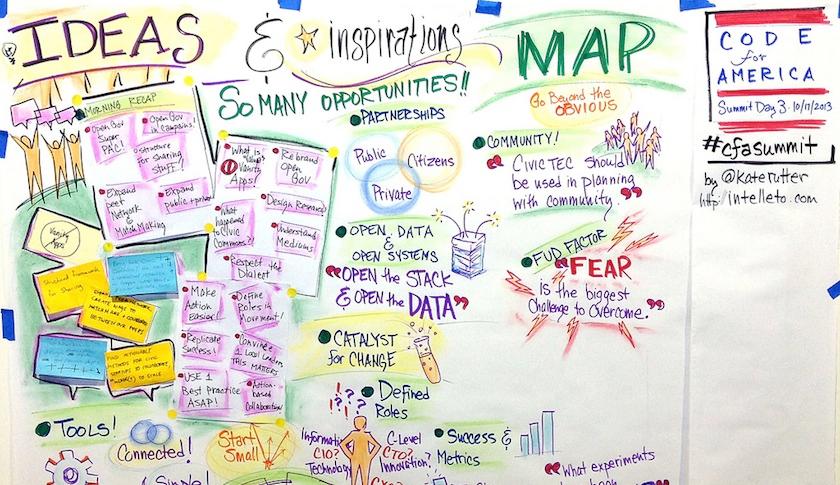 IDEAS & inspirations MAP
CODE
for
AMERICA
Summit Day 3 • 10/17/2013
#cfasummit
by @katerutter
http://intelleto.com
MORNING RECAP
Open Gov
Super
PAC!
Open Gov
in Campaigns!
Structure
for sharing
stuff!
Expand
peer
Network
&
Match Making
Expand
public + private
What is
"Value"
Vanity
Apps!
Rebrand
Open
Gov
What
happened
to Civic
Commons?!
Design Research
Understand
Mediums
Respect the
Dialect
Vanity
Apps!
for sharing
Make
Action
Easier!
Define
Roles in
Movement!
Replicate
Success!
Convince
1 Local Leader
THIS MATTERS
USE 1
Best Practice
ASAP!
Action-
based
Collaboration
SO MANY OPPORTUNITIES!!
PARTNERSHIPS
Public
Citizens
Private
OPEN DATA
&
OPEN SYSTEMS
"OPEN the STACK
& OPEN the DATA"
CATALYST
for CHANGE
Defined
Roles
! ? ! ? ?
Information
CIO?
Technology
C-Level
CTO?
Innovation?
Success &
Metrics
Go Beyond the
OBVIOUS
COMMUNITY!
"CIVIC TEC should
be used in planning
with community."
FUD FACTOR
"FEAR
is the biggest
Challenge to Overcome."
"What experiments
TOOLS!
Connected!
Start
Small
Simple!